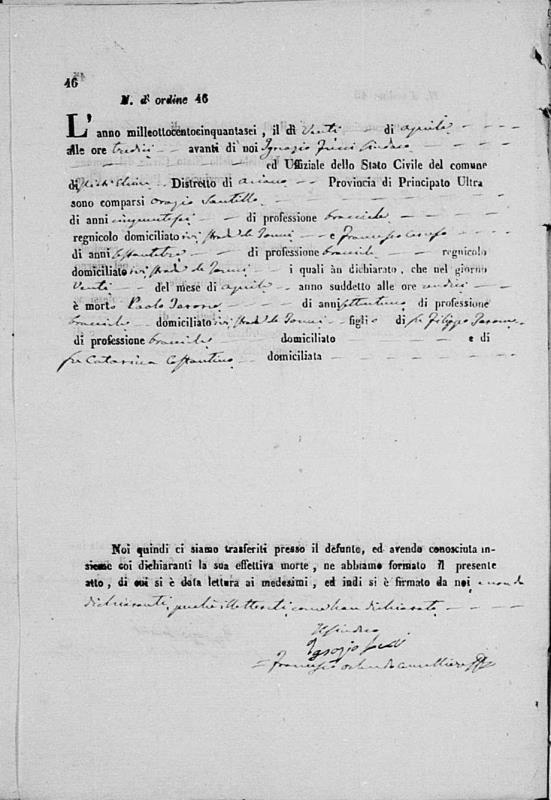 46
N. d' ordine 46
L' anno milleottocentocinquantasei, il dì Venti — di aprile — — —
Alle ore tredici — — avanti di noi Ignazio — Sindaco —
— — — — ed Uffiziale dello Stato Civile del comune
di — Distretto di Ariano — — Provincia di Principato Ultra
sono comparsi Orazio Santillo — — —
di anni cinquantasei — — di professione bracciale — — —
regnicolo domiciliato ivi strada — — e Francesco —
di anni — — di professione bracciale — — regnicolo
domiciliato ivi strada — — i quali àn dichiarato, che nel giorno
Venti — — del mese di aprile — anno suddetto alle ore undici — —
è morto Paolo Iarone — — di anni settantuno di professione
bracciale — domiciliato ivi strada — — figlio di fu Filippo Iarone
di professione bracciale — domiciliato — — e di
fu Catarina Costantino — domiciliata — — — —
Noi quindi ci siamo trasferiti presso il defunto, ed avendo conosciuta in-
sieme coi dichiaranti la sua effettiva morte, ne abbiamo formato il presente
atto, di cui si è data lettura ai medesimi, ed indi si è firmato da noi e non da
dichiaranti, perché illetterati come han dichiarato — — —
Il Sindaco
Ignazio
Francesco — Cancelliere